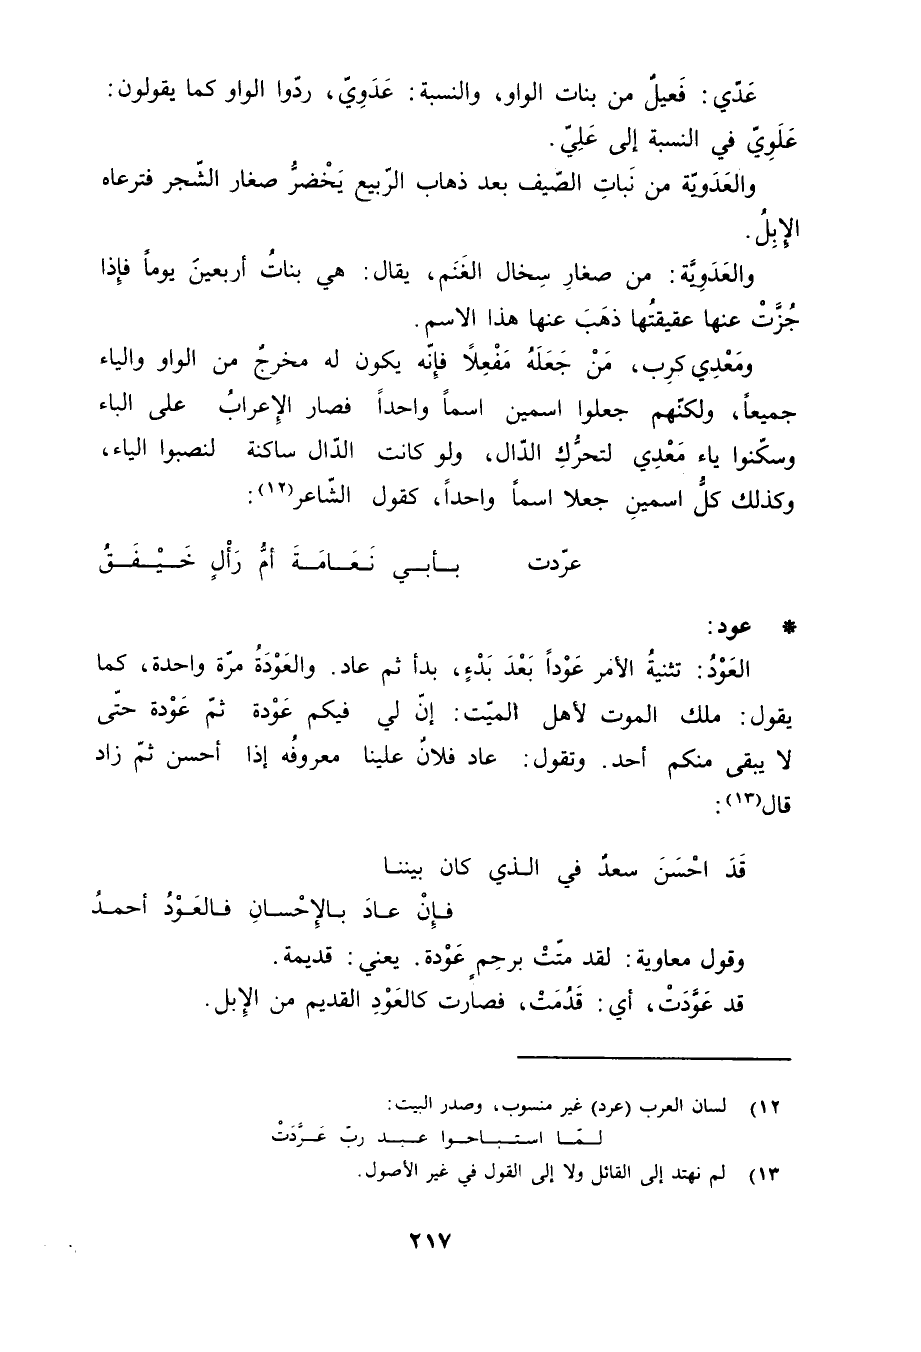 عَدّي: فَعيلٌ من بنات الواو، والنسبة: عَدَوِيّ، ردّوا الواو كما يقولون:
عَلَوِيّ في النسبة إلى عَلِيّ.
والعَدَويّة من نَباتِ الصّيف بعد ذهاب الرّبيع يَخْضرُّ صغار الشّجر فترعاه
الإِبِلُ.
والعَدَوِيَّة: من صغارِ سِخال الغَنَم، يقال: هي بناتُ أربعينَ يوماً فإِذا
جُزَّتْ عنها عقيقتُها ذهَبَ عنها هذا الاسم.
ومَعْدِي كرِب، مَنْ جَعَلَهُ مَفْعِلاً فإِنّه يكون له مخرجٌ من الواو والياء
جميعاً، ولكنّهم جعلوا اسمين اسماً واحداً فصار الإعرابُ على الباء
وسكّنوا ياء مَعْدِي لتحرُّكِ الدّال، ولو كانت الدّال ساكنة لنصبوا الياء،
وكذلك كلُّ اسمينِ جعلا اسماً واحداً، كقول الشّاعر(١٢):
عرّدت بـأبـي نَـعَـامَـةَ أمُّ رَأْلٍ خَـيْـفَـقُ
* عود:
العَوْدُ: تثنيةُ الأمر عَوْداً بَعْدَ بَدْءٍ، بدأ ثم عاد. والعَوْدَةُ مرّة واحدة، كما
يقول: ملك الموت لأهل الميّت: إنّ لي فيكم عَوْدة ثمّ عَوْدة حتّى
لا يبقى منكم أحد. وتقول: عاد فلانٌ علينا معروفُه إذا أحسن ثمّ زاد
قال(١٣):
قَدَ احْسَنَ سعدٌ في الـذي كان بيننـا
فـإِنْ عـادَ بـالإِحْسـانِ فـالعَـوْدُ أحمـدُ
وقول معاوية: لقد متّتْ برحِمٍ عَوْدة. يعني: قديمة.
قد عَوَّدَتْ، أي: قَدُمَتْ، فصارت كالعَوْدِ القديم من الإِبل.
١٢) لسان العرب (عرد) غير منسوب، وصدر البيت:
لـمّـا استـبـاحـوا عـبـد ربّ عَـرَّدَتْ
١٣) لم نهتد إلى القائل ولا إلى القول في غير الأصول.
٢١٧